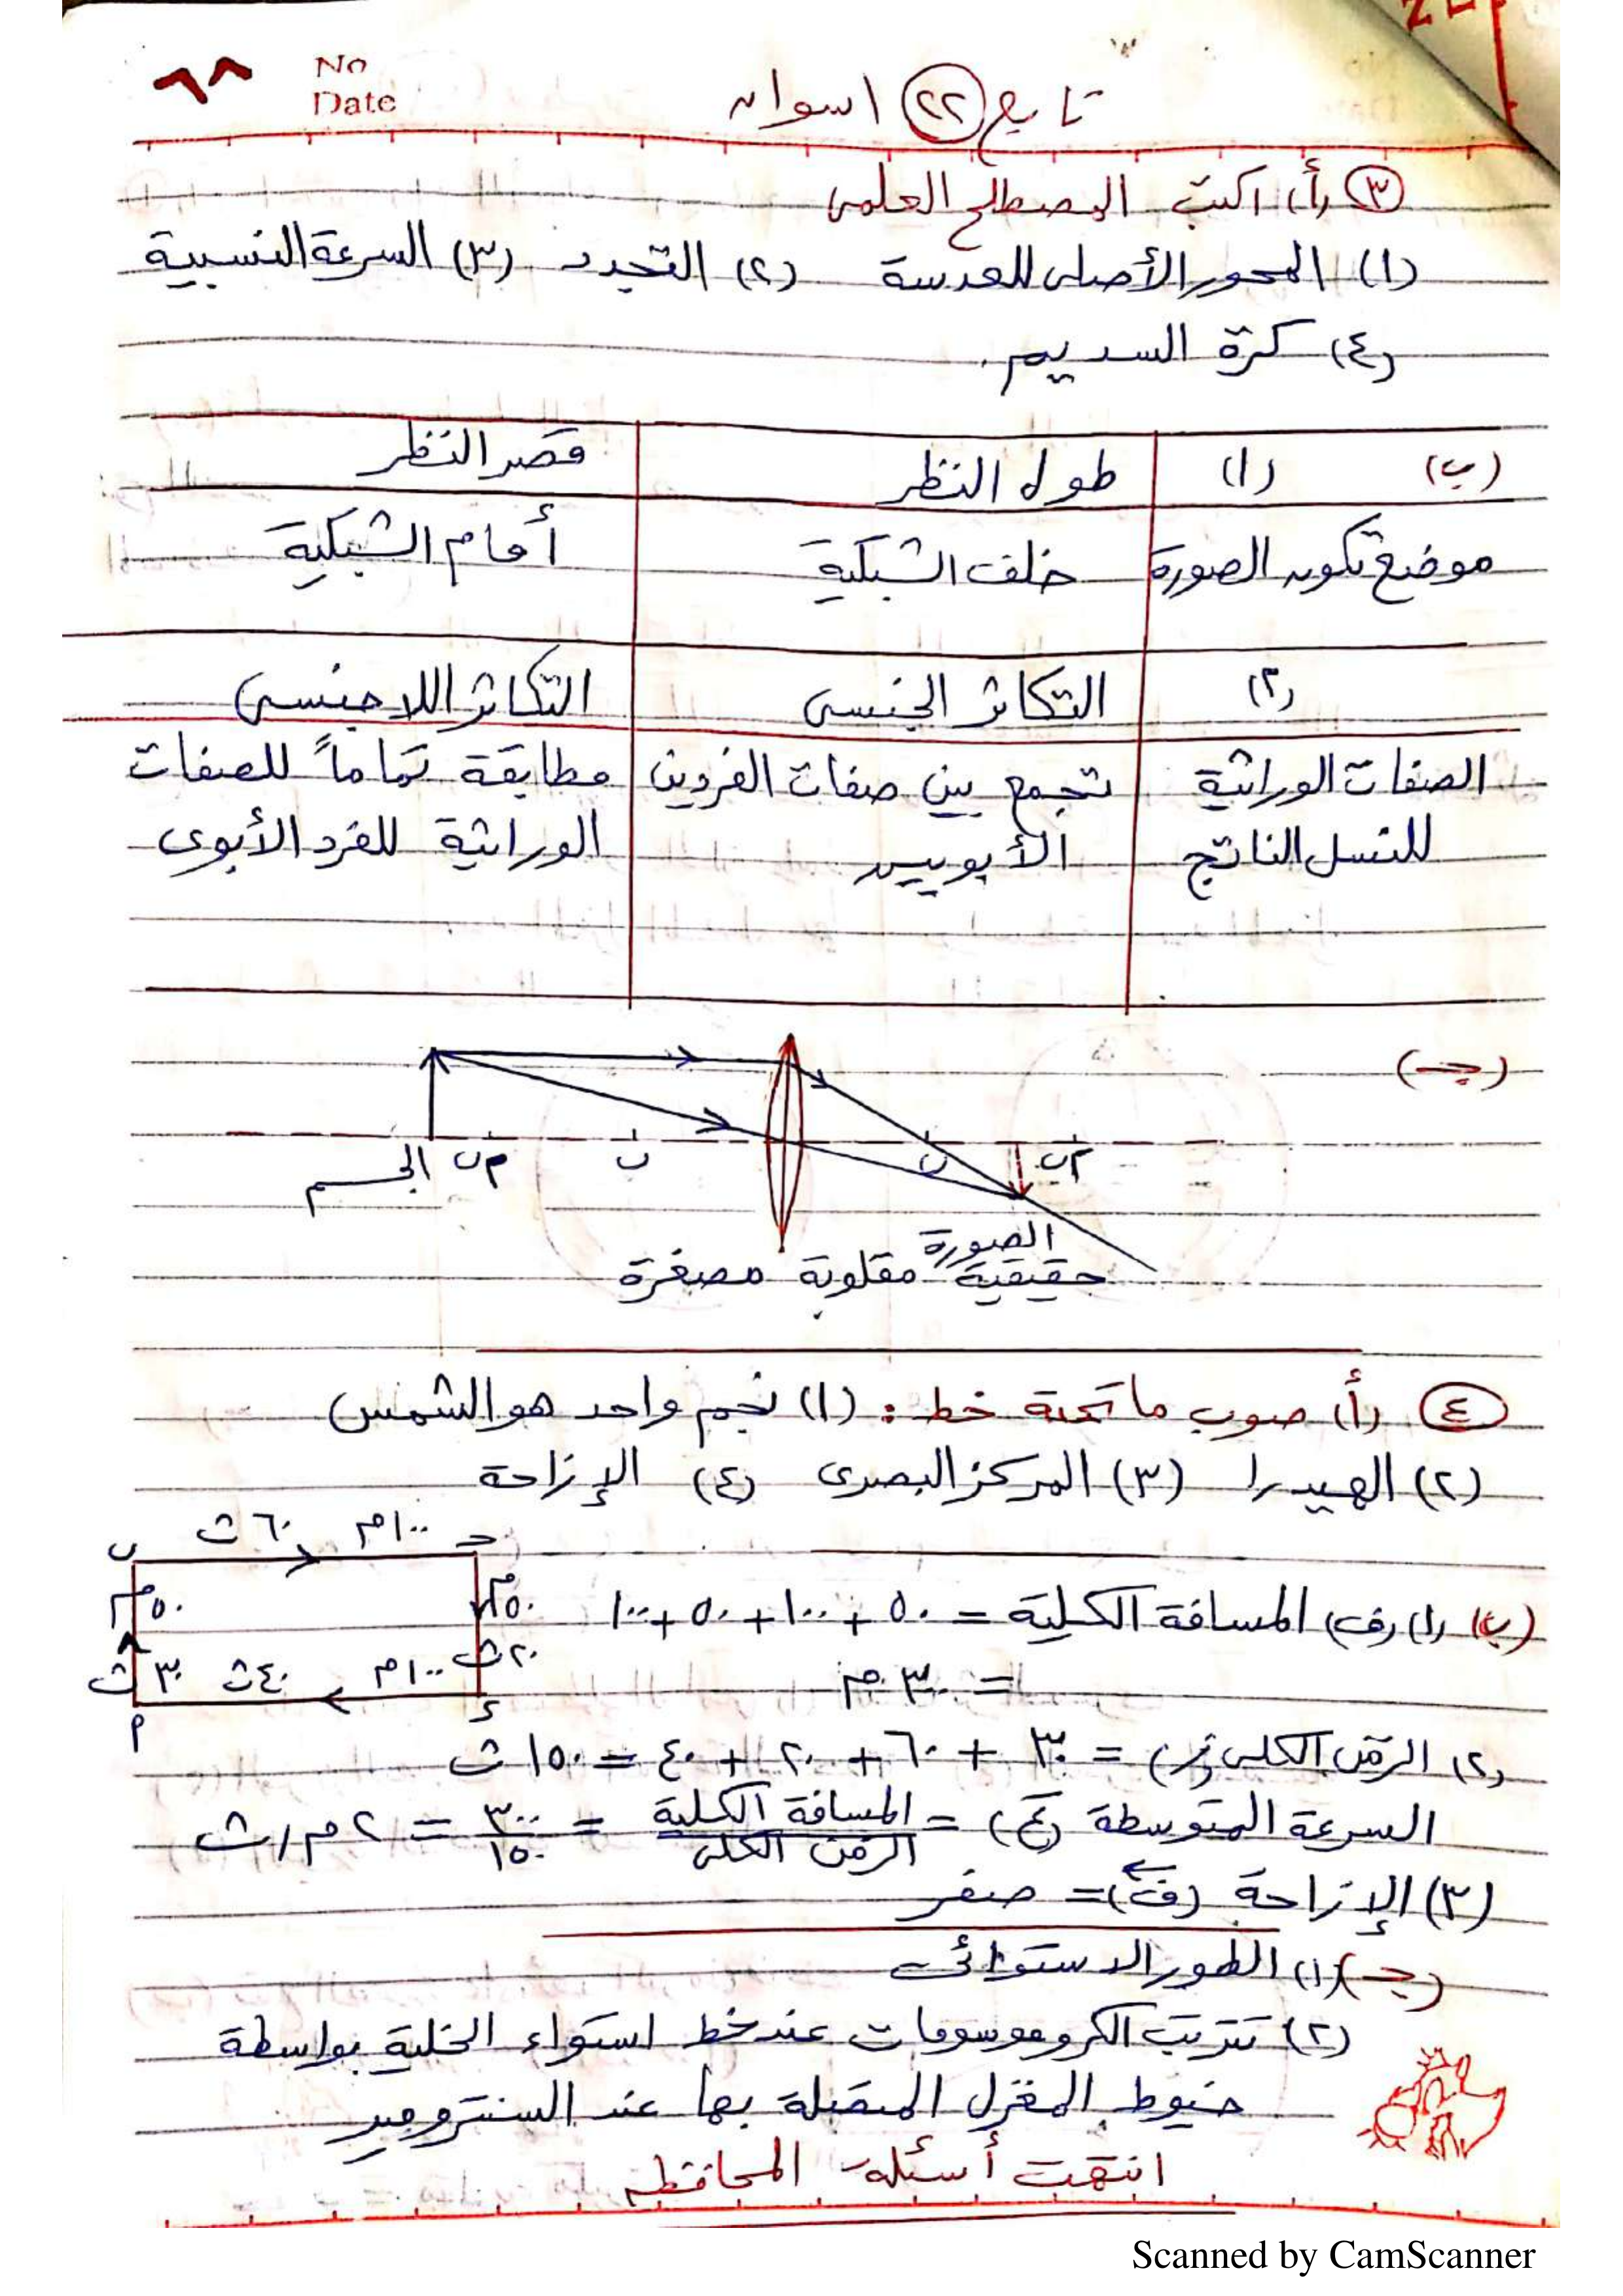 ٦٨
No
Date
تابع (٢٢) اسوان
(٣) (أ) اكتب المصطلح العلمى
(١) المحور الأصلى للعدسة (٢) التجدد (٣) السرعة النسبية
(٤) كرة السديم.
(ب) (١) طول النظر قصر النظر
موضع تكون الصورة خلف الشبكية أمام الشبكية
(٢) التكاثر الجنسى التكاثر اللاجنسى
الصفات الوراثية تجمع بين صفات الفردين مطابقة تماماً للصفات
للنسل الناتج الأبويين الوراثية للفرد الأبوى
(جـ)
الجسم ٢ب ب ب ٢ب
الصورة
حقيقية مقلوبة مصغرة
(٤) (أ) صوب ما تحته خط : (١) نجم واحد هو الشمس
(٢) الهيدرا (٣) المركز البصرى (٤) الإزاحة
ب ٦٠ث ١٠٠م جـ
٥٠م ٥٠م
٣٠ث ٤٠ث ١٠٠م ٢٠ث
أ ء
(ب) (١) (ف) المسافة الكلية = ٥٠ + ١٠٠ + ٥٠ + ١٠٠
= ٣٠٠م
(٢) الزمن الكلى (ز) = ٣٠ + ٦٠ + ٢٠ + ٤٠ = ١٥٠ث
السرعة المتوسطة (ع) = المسافة الكلية / الزمن الكلى = ٣٠٠ / ١٥٠ = ٢م/ث
(٣) الإزاحة (ف) = صفر
(جـ) (١) الطور الاستوائى
(٢) تترتب الكروموسومات عند خط استواء الخلية بواسطة
خيوط المغزل المتصلة بها عند السنترومير
انتهت أسئلة المحافظة
Scanned by CamScanner